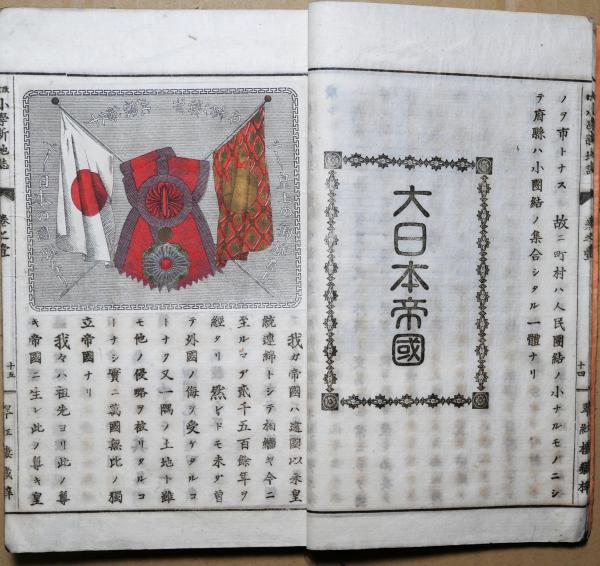 ノヲ市トナス 故ニ町村ハ人民團結ノ小ナルモノニシ
テ府縣ハ小團結ノ集合シタル一體ナリ
大日本帝國
十四
小學新地誌
卷之壹
十五
我ガ帝國ハ建國以來皇
統連綿トシテ相繼ギ今ニ
至ルマデ貳千五百餘年ヲ
經タリ 然レドモ未ダ曽
テ外國ノ侮ヲ受ケタルコ
トナク又一隅ノ土地ト雖
モ他ノ侵略ヲ被リタルコ
トナシ實ニ萬國無比ノ獨
立帝國ナリ
我々ハ祖先ヨリ此ノ尊
キ帝國ニ生レ此ノ尊キ皇